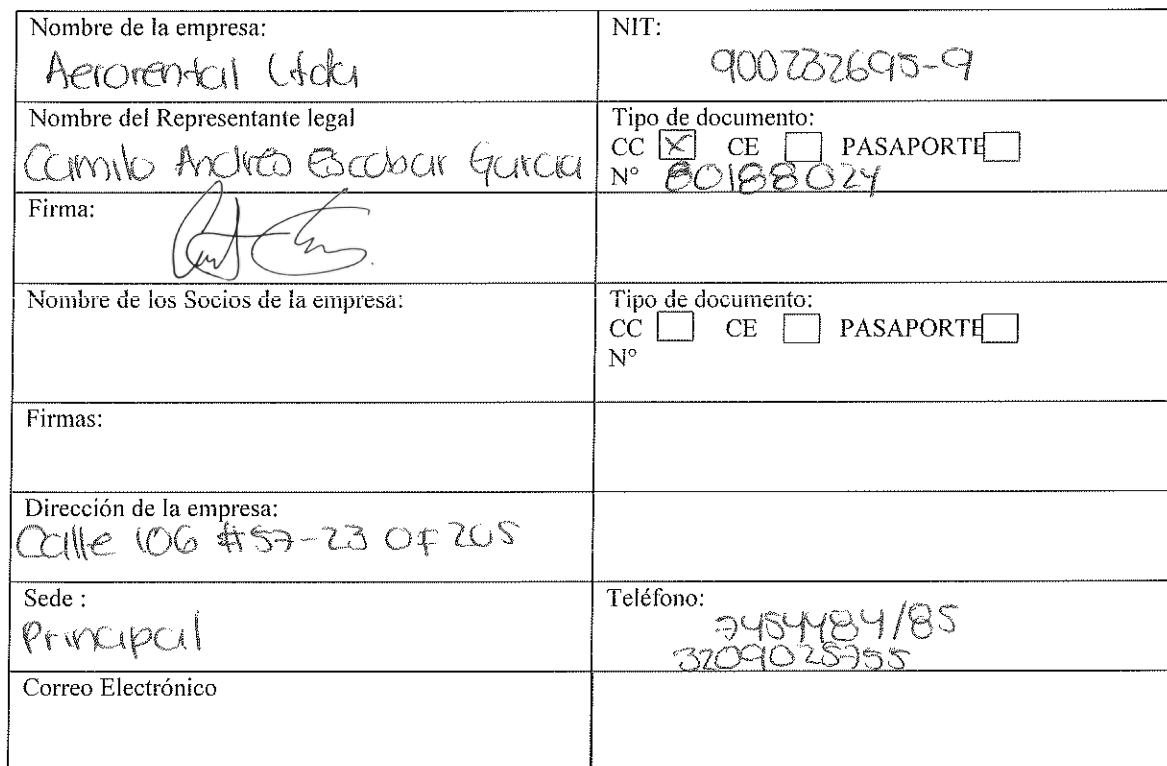 Nombre de la empresa:
Aerorental Ltda
NIT:
900232695-9
Nombre del Representante legal
Camilo Andrés Escobar Garcia
Tipo de documento:
CC X CE PASAPORTE
N° 80188024
Firma:
Nombre de los Socios de la empresa:
Tipo de documento:
CC CE PASAPORTE
N°
Firmas:
Dirección de la empresa:
Calle 106 #57-23 OF 205
Sede :
Principal
Teléfono:
7454484/85
3209025755
Correo Electrónico